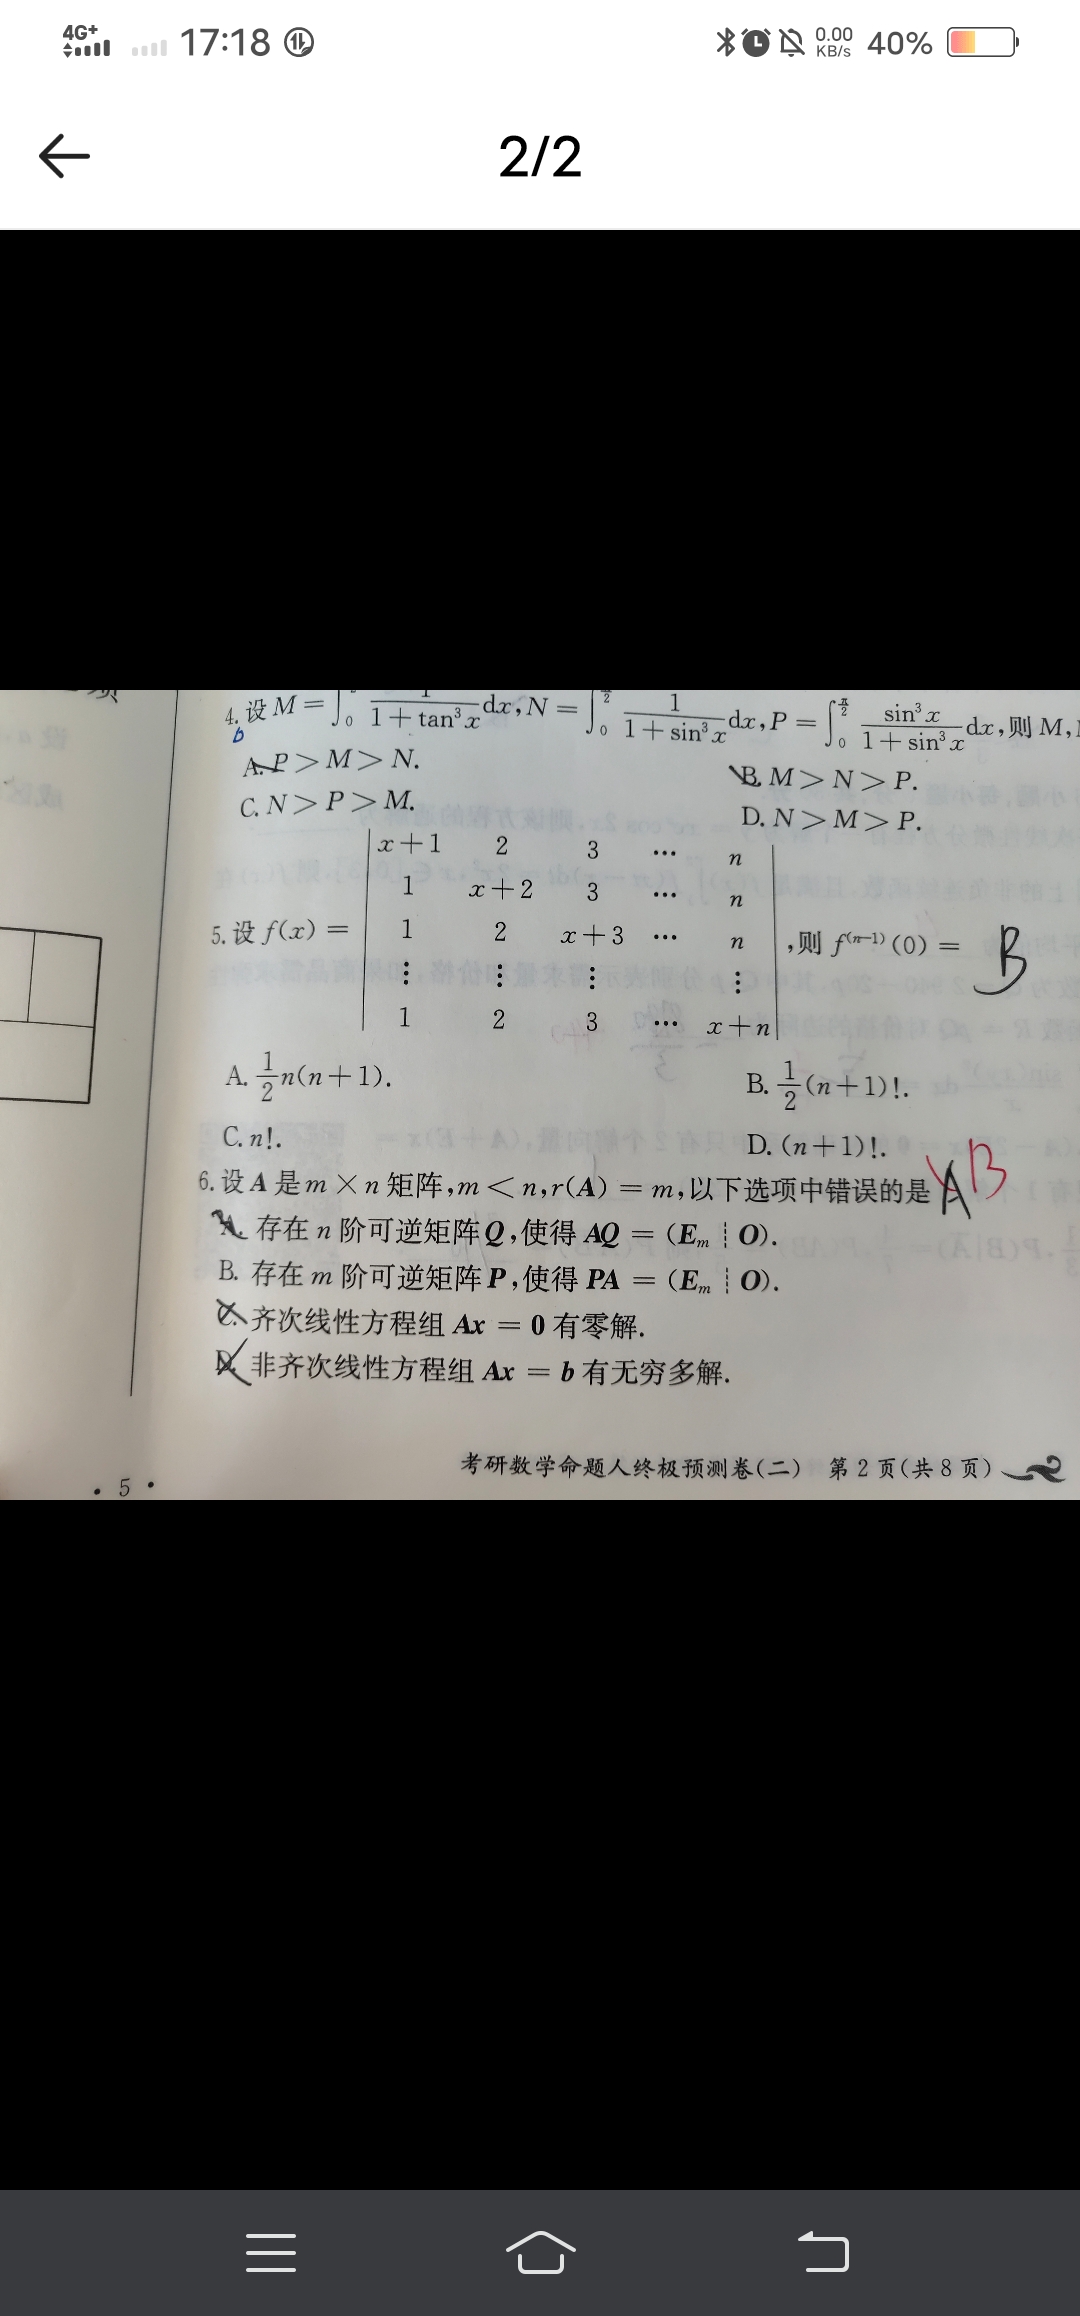 4G+ 17:18 0.00 KB/s 40%
2/2
4. 设 M = ∫₀ 1/(1+tan³x) dx, N = ∫₀^(π/2) 1/(1+sin³x) dx, P = ∫₀^(π/2) sin³x/(1+sin³x) dx, 则 M,
b
A. P > M > N.
B. M > N > P.
C. N > P > M.
D. N > M > P.
x+1 2 3 … n
1 x+2 3 … n
5. 设 f(x) = 1 2 x+3 … n , 则 f⁽ⁿ⁻¹⁾(0) = B
⋮ ⋮ ⋮ ⋮
1 2 3 … x+n
A. 1/2 n(n+1).
B. 1/2 (n+1)!.
C. n!.
D. (n+1)!.
6. 设 A 是 m × n 矩阵, m < n, r(A) = m, 以下选项中错误的是 A B
A. 存在 n 阶可逆矩阵 Q, 使得 AQ = (Eₘ ┆ O).
B. 存在 m 阶可逆矩阵 P, 使得 PA = (Eₘ ┆ O).
C. 齐次线性方程组 Ax = 0 有零解.
D. 非齐次线性方程组 Ax = b 有无穷多解.
考研数学命题人终极预测卷(二) 第 2 页(共 8 页)
• 5 •